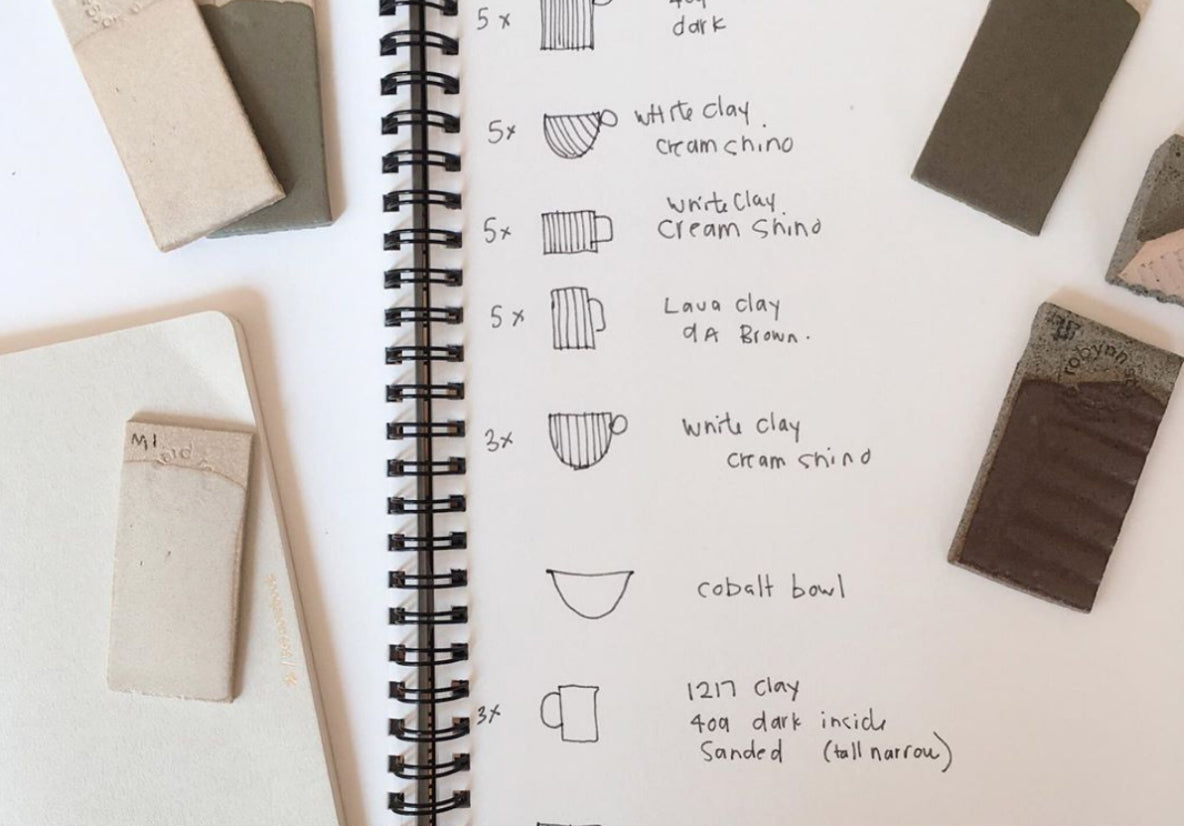 5x
dark
5x white clay
cream shino
5x white clay
cream shino
5x Lava clay
9A Brown.
3x white clay
cream shino
cobalt bowl
3x 1217 clay
409 dark inside
Sanded (tall narrow)
M1
robynn